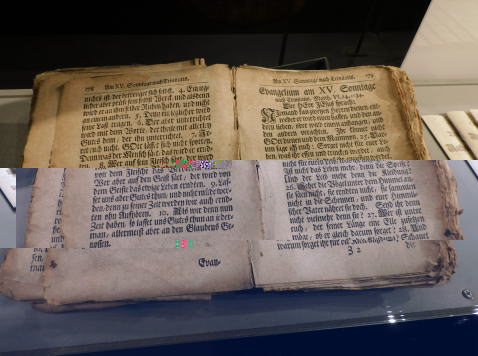 178 Am XV. Sonntage nach Trinitatis.
nichts ist der sorget sich selbst. 4. Ein jeg-
licher aber prüfe sein selbst Werck, und alsdenn
wird er an ihm selber Ruhm haben, und nicht
an einem andern. 5. Denn ein jeglicher wird
wird mit dem Worte, der theile mit allerley
Gutes dem, der ihn unterrichtet. 7. Ir-
ret euch nicht, GOtt läßt sich nicht spotten.
Denn was der Mensch säet, das wird er ernd-
von dem Fleische das
Wer aber auf den Geist säet, der wird von
dem Geiste das ewige Leben erndten. 9. Las-
set uns aber Gutes thun, und nicht müde wer-
den, denn zu seiner Zeit werden wir auch ernd-
ten ohn Aufhören. 10. Als wir denn nun
Zeit haben, so lasset uns Gutes thun an jeder-
man, allermeist aber an den Glaubens Ge-
nossen.
Evan-
Am XV. Sonntage nach Trinitatis. 179
Evangelium am XV. Sonntage
nach Trinitatis, Matth. VI, 24.-34.
Der HErr JEsus sprach:
Niemand kan zweyen Herren dienen, ent-
weder er wird einen hassen und den
andern lieben, oder wird einem anhangen, und
den andern verachten. Ihr könnet nicht
GOtt dienen und dem Mammon. 25. Dar-
um sage ich euch: Sorget nicht für euer Le-
ben, was ihr essen und trincken werdet, auch
Ist nicht das Leben mehr, denn die Speise?
und der Leib mehr denn die Kleidung?
26. Sehet die Vögel unter dem Himmel an,
sie säen nicht, sie erndten nicht, sie sammlen
nicht in die Scheunen, und euer himmli-
scher Vater nähret sie doch. Seyd ihr denn
nicht vielmehr denn sie? 27. Wer ist unter
euch, der seiner Länge eine Elle zusetzen
möge, ob er gleich darum sorget? 28. Und
warum sorget ihr für die Kleidung? Schauet
die